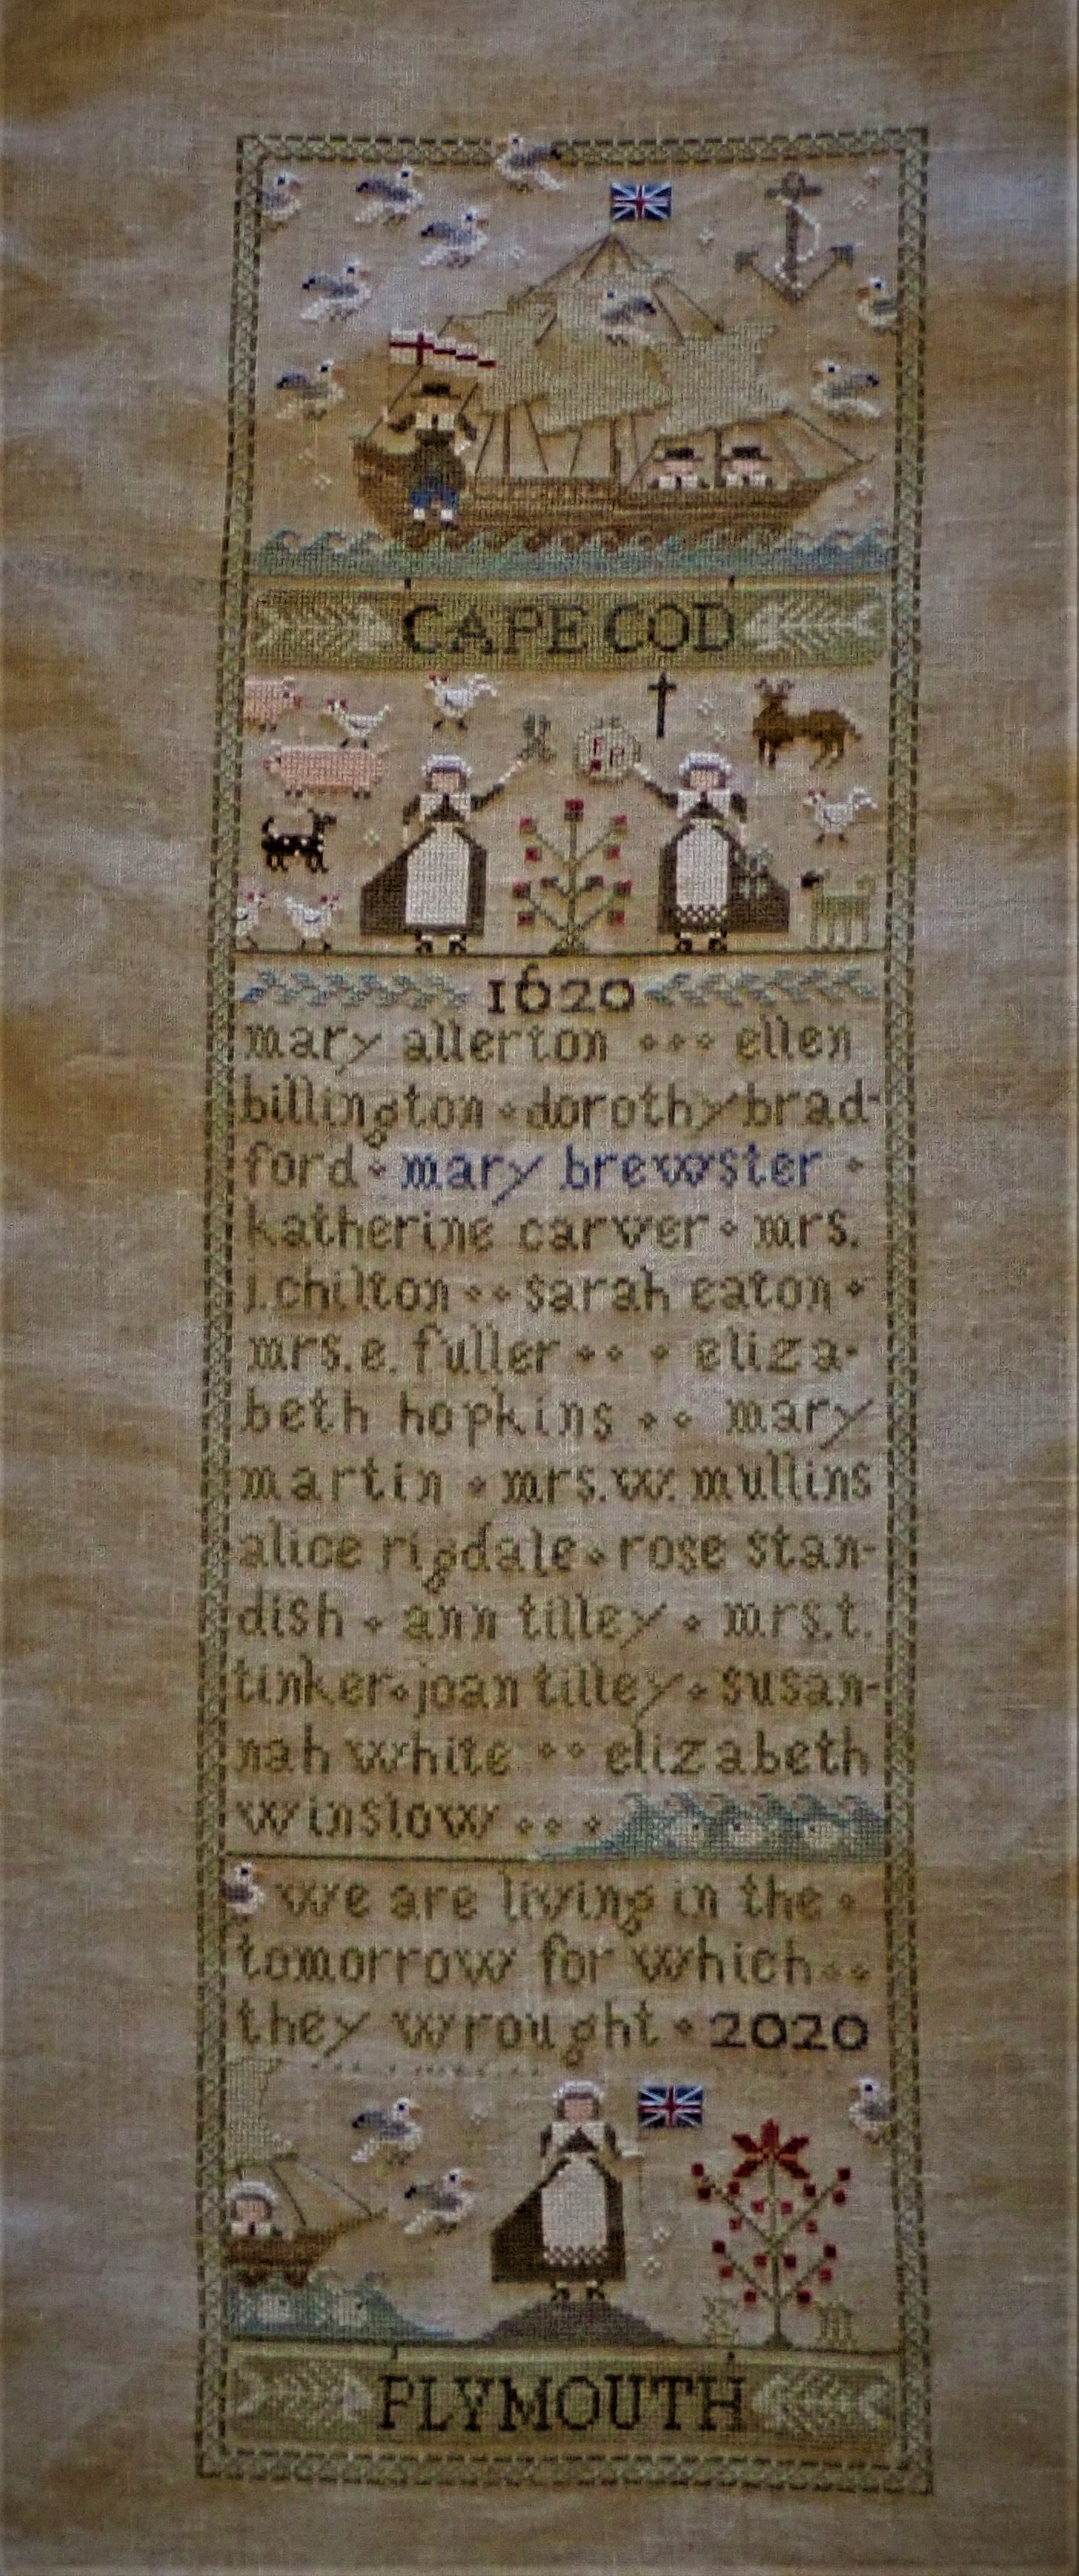 CAPE COD
1620
mary allerton ∘∘∘ ellen
billington ∘ dorothy brad-
ford ∘ mary brewster ∘
katherine carver ∘ mrs.
j. chilton ∘∘ sarah eaton ∘
mrs. e. fuller ∘∘ ∘ eliza-
beth hopkins ∘∘ mary
martin ∘ mrs. w. mullins
alice rigdale ∘ rose stan-
dish ∘ ann tilley ∘ mrs. t.
tinker ∘ joan tilley ∘ susan-
nah white ∘∘ elizabeth
winslow ∘∘∘
we are living in the ∘
tomorrow for which ∘∘
they wrought ∘ 2020
PLYMOUTH